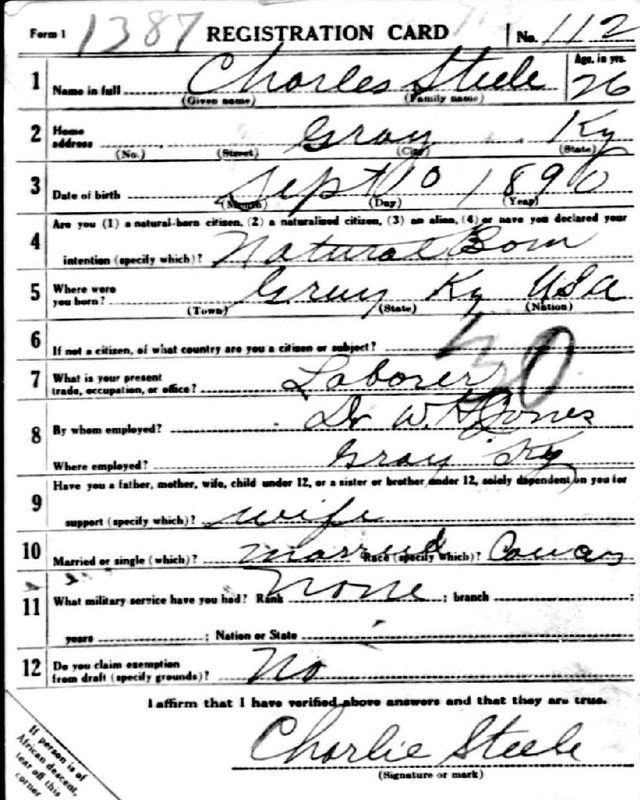 Form 1 1387 REGISTRATION CARD No. 112
1 Name in full Charles Steele Age, in yrs. 26
(Given name) (Family name)
2 Home address Gray Ky
(No.) (Street) (City) (State)
3 Date of birth Sept 10 1890
(Month) (Day) (Year)
4 Are you (1) a natural-born citizen, (2) a naturalized citizen, (3) an alien, (4) or have you declared your
intention (specify which)? Natural Born
5 Where were you born? Gray Ky USA
(Town) (State) (Nation)
6 If not a citizen, of what country are you a citizen or subject?
30
7 What is your present trade, occupation, or office? Laborer
8 By whom employed? Dr W. H Jones
Where employed? Gray Ky
9 Have you a father, mother, wife, child under 12, or a sister or brother under 12, solely dependent on you for
support (specify which)? wife
10 Married or single (which)? married Race (specify which)?
11 What military service have you had? Rank none ; branch
years ; Nation or State
12 Do you claim exemption from draft (specify grounds)? No
I affirm that I have verified above answers and that they are true.
Charlie Steele
(Signature or mark)
If person is of
African descent,
tear off this
corner